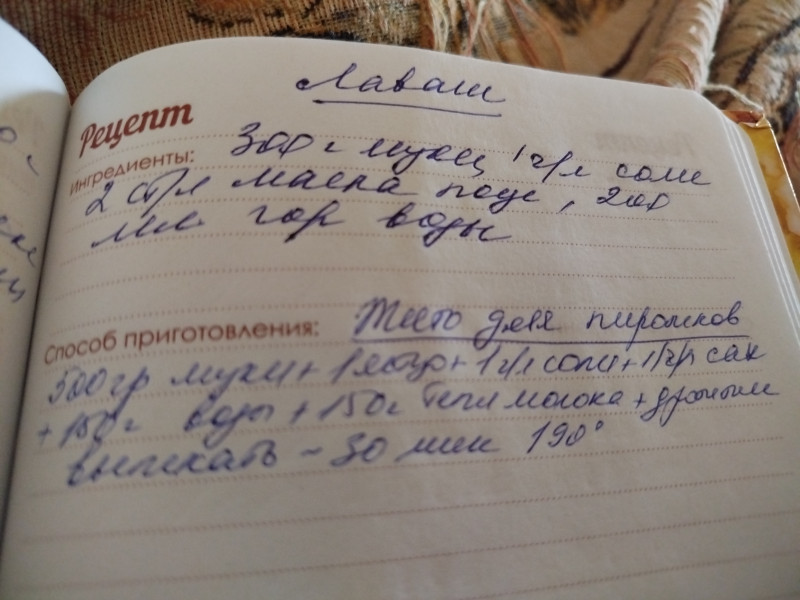 Лаваш
Рецепт
Ингредиенты: 300 г муки, 1 ч/л соли
2 ст/л масла подс, 200
мл. гор воды
Способ приготовления: Тесто для пирожков
500гр муки + 1 яйцо + 1 ч/л соли + 1 ч/л сах
+ 150г воды + 150г тепл молока + дрожжи
выпекать - 30 мин 190°